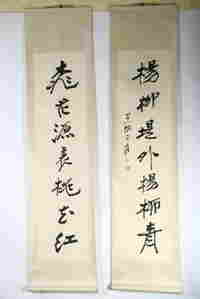 楊柳堤外楊柳青
桃花源裏桃花红